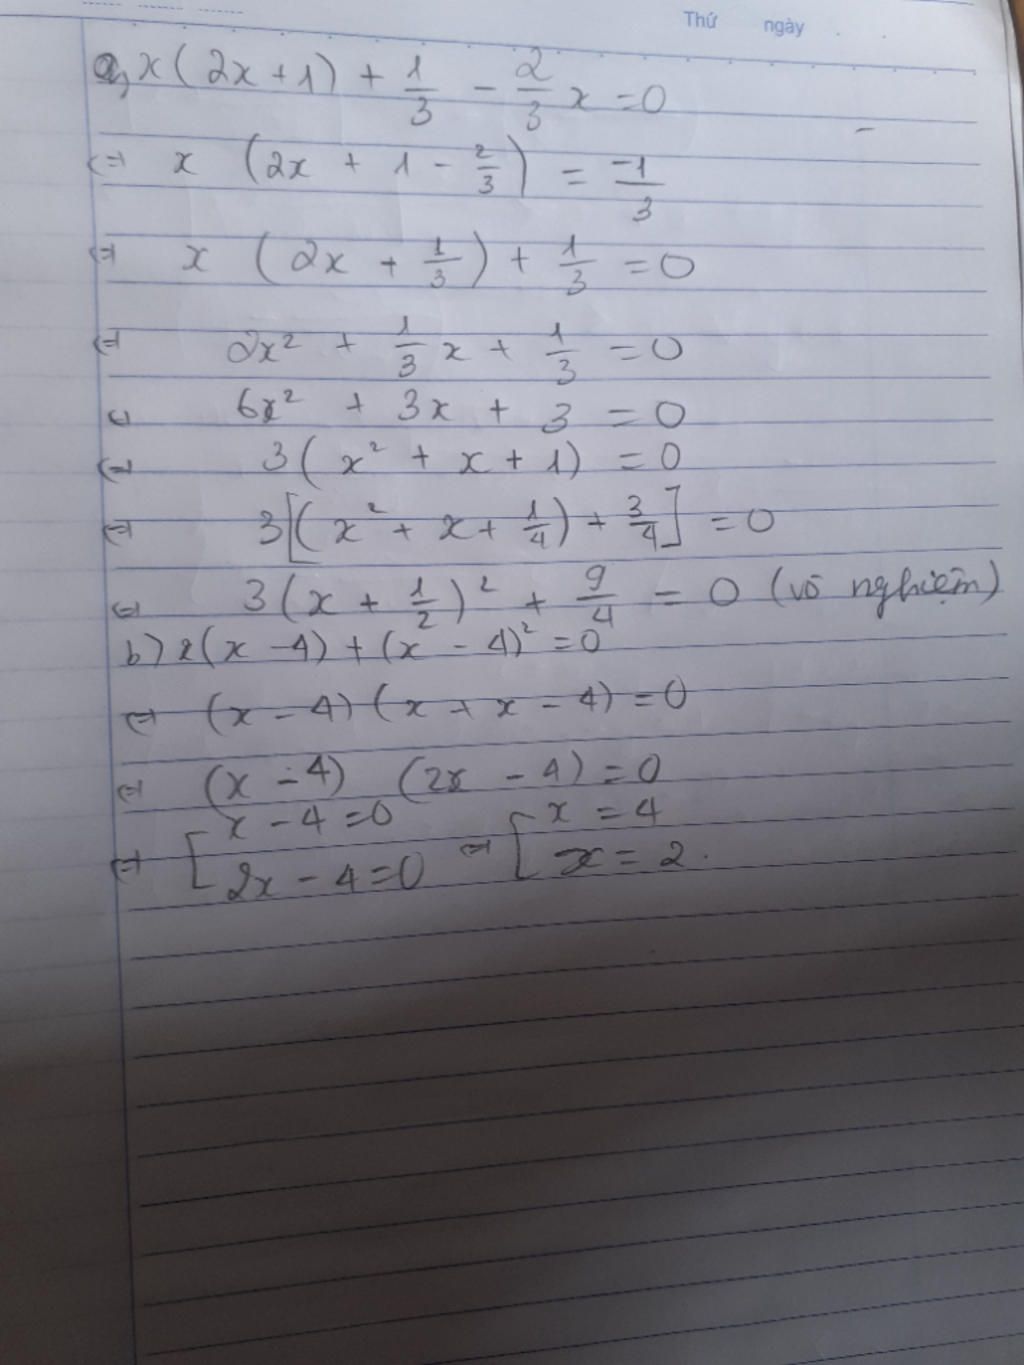 Thứ ngày
a, x(2x+1) + 1/3 - 2/3 x = 0
⇔ x (2x + 1 - 2/3) = -1/3
⇔ x (2x + 1/3) + 1/3 = 0
⇔ 2x² + 1/3 x + 1/3 = 0
⇔ 6x² + 3x + 3 = 0
⇔ 3(x² + x + 1) = 0
⇔ 3[(x² + x + 1/4) + 3/4] = 0
⇔ 3(x + 1/2)² + 9/4 = 0 (vô nghiệm)
b) x(x - 4) + (x - 4)² = 0
⇔ (x - 4)(x + x - 4) = 0
⇔ (x - 4) (2x - 4) = 0
⇔ [ x - 4 = 0 ⇔ [ x = 4
2x - 4 = 0 x = 2.